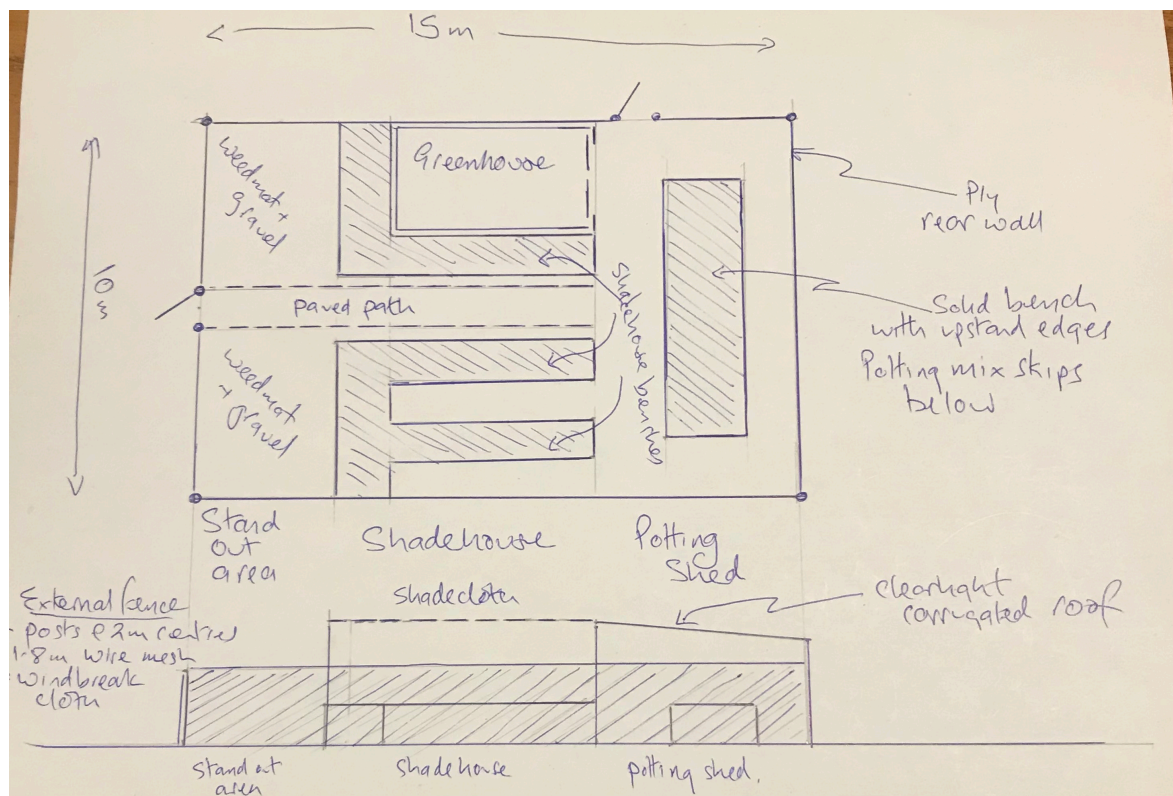 15m
weedmat +
gravel
Greenhouse
10m
Ply
rear wall
paved path
shadehouse benches
Solid bench
with upstand edges
Potting mix skips
below
weedmat
+ gravel
Stand
out
area
Shadehouse
Potting
Shed
External fence
- posts @ 2m centres
1.8m wire mesh
windbreak
cloth
shadecloth
clearlight
corrugated roof
Stand out
area
shadehouse
potting shed.